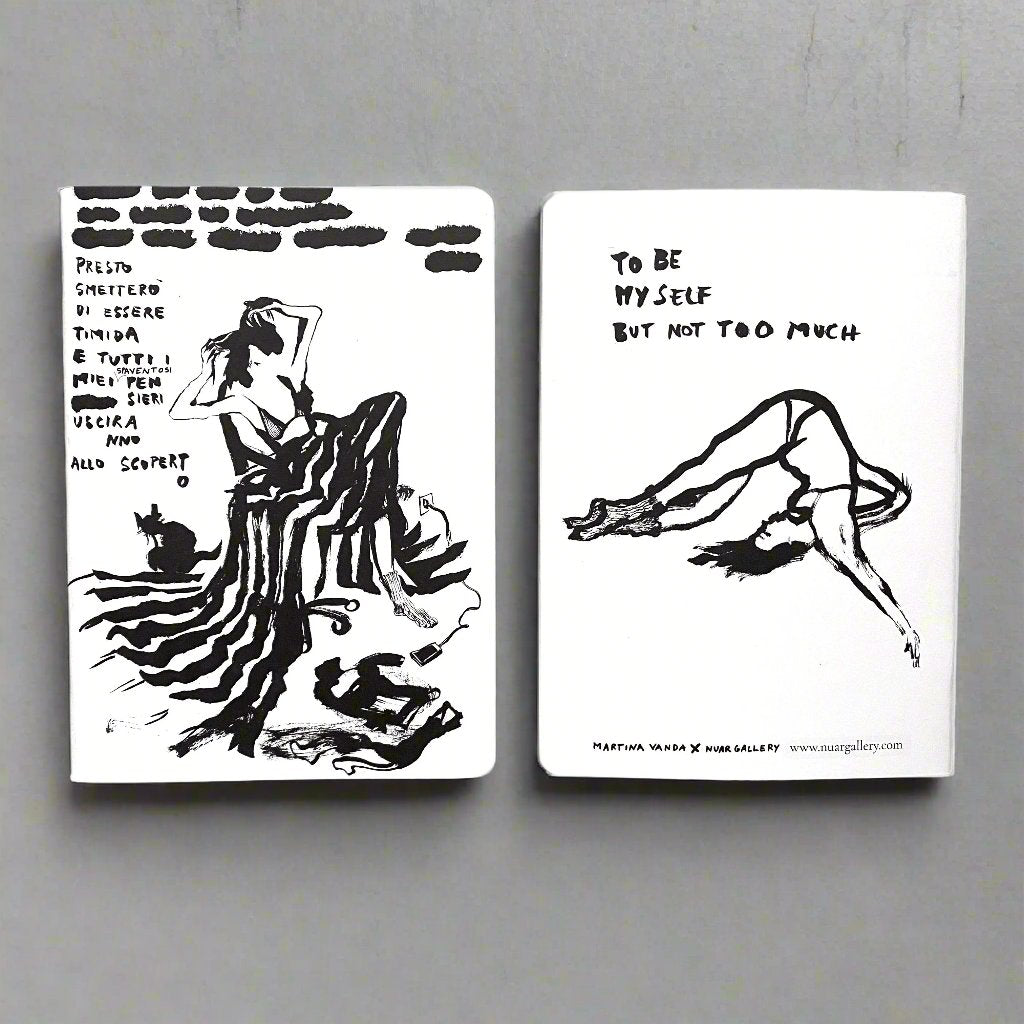 PRESTO
SMETTERÒ
DI ESSERE
TIMIDA
E TUTTI I
SPAVENTOSI
MIEI PEN
SIERI
USCIRA
NNO
ALLO SCOPERT
O
TO BE
MYSELF
BUT NOT TOO MUCH
MARTINA VANDA X NUARGALLERY www.nuargallery.com